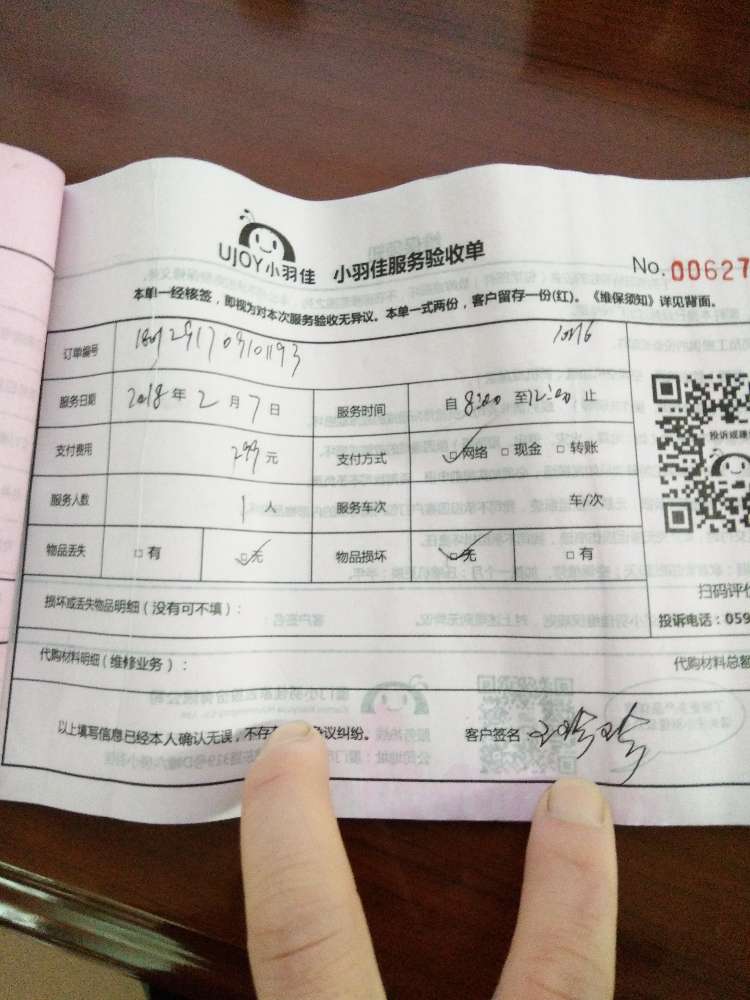 UJOY小羽佳 小羽佳服务验收单
No. 00627
本单一经核签，即视为对本次服务验收无异议。本单一式两份，客户留存一份(红)。《维保须知》详见背面。
订单编号
服务日期 2018 年 2 月 7 日 服务时间 自 8:00 至 12:00 止
支付费用 299 元 支付方式 网络 现金 转账
服务人数 1 人 服务车次 车/次
物品丢失 有 无 物品损坏 无 有
投诉或建
扫码评价
损坏或丢失物品明细（没有可不填）：
投诉电话：059
代购材料明细（维修业务）：
代购材料总额
以上填写信息已经本人确认无误，不存 争议纠纷。 客户签名